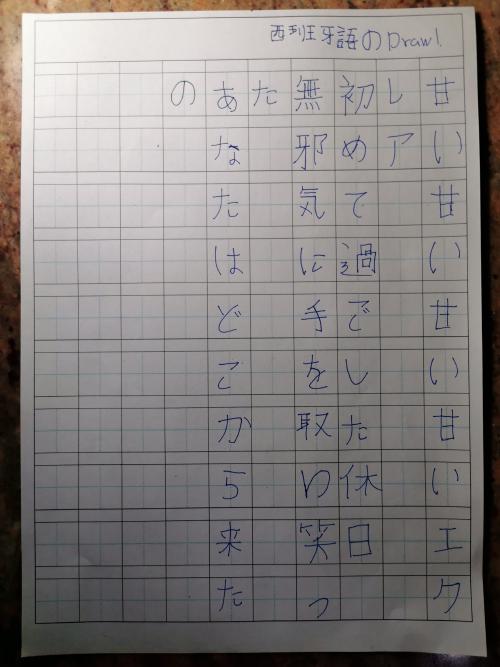 西班牙語のDrawl.
甘い甘い甘い甘いエク
レア
初めて過でした休日
無邪気に手を取り笑っ
た
あなたはどこから来た
の